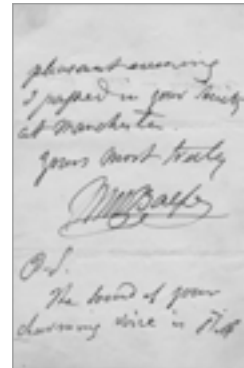 pleasant evening
I passed in your Society
at Manchester.
Yours most truly
MW Balfe
P.S.
The sound of your
charming voice is still